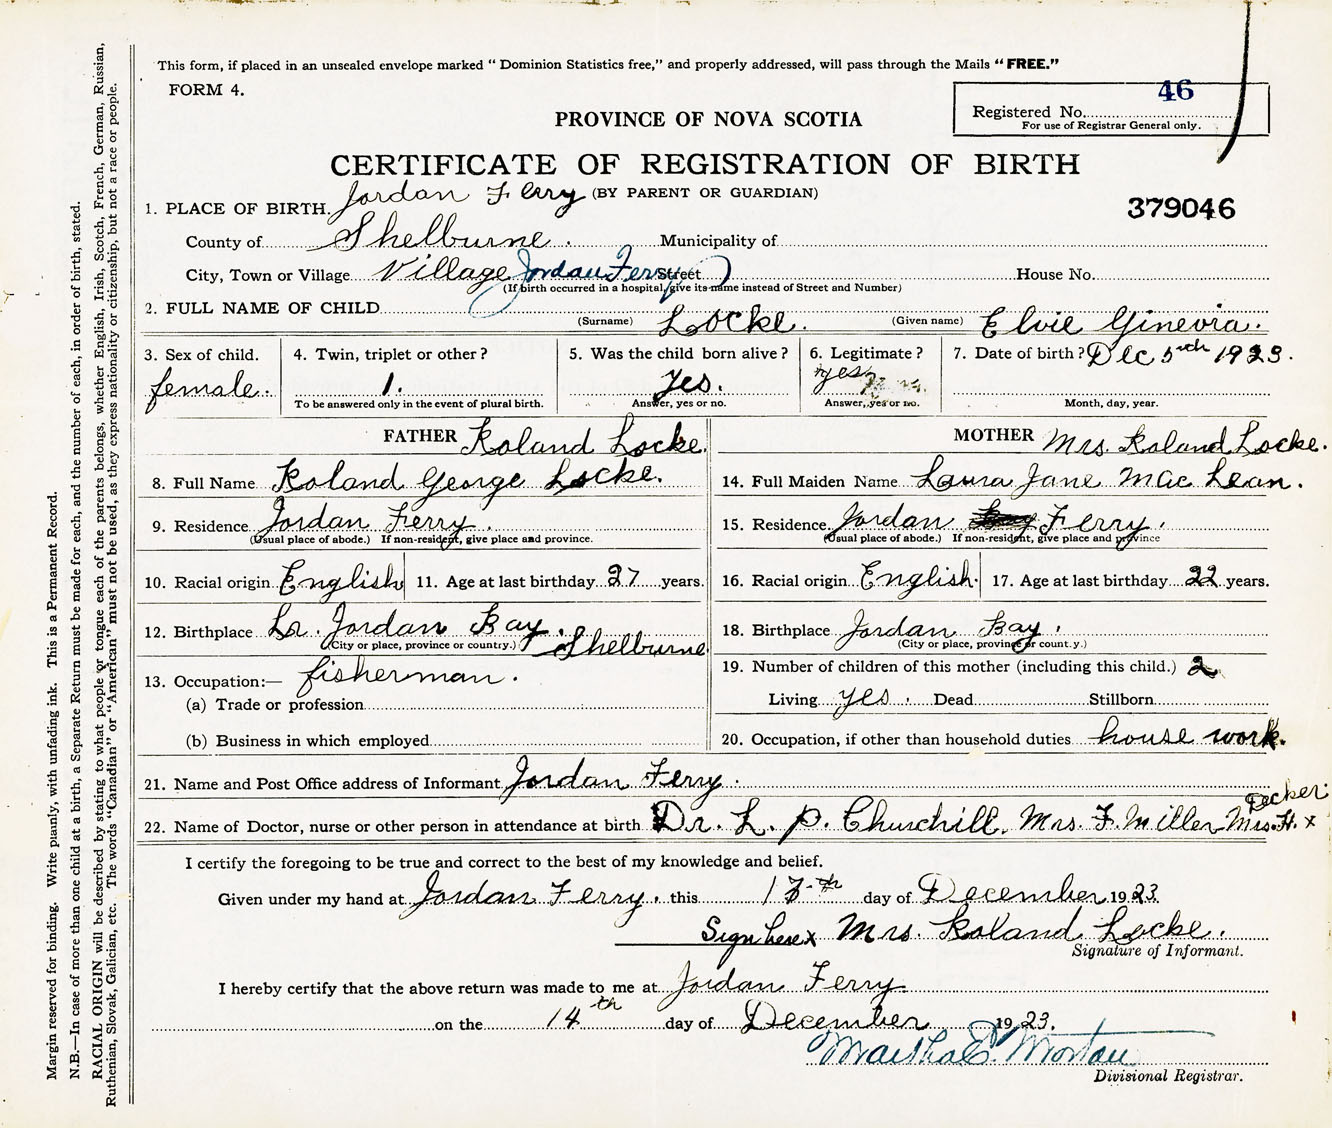 This form, if placed in an unsealed envelope marked "Dominion Statistics free," and properly addressed, will pass through the Mails "FREE."
FORM 4.
46
Registered No.
For use of Registrar General only.
PROVINCE OF NOVA SCOTIA
CERTIFICATE OF REGISTRATION OF BIRTH
(BY PARENT OR GUARDIAN)
379046
1. PLACE OF BIRTH. Jordan Ferry
County of Shelburne. Municipality of
City, Town or Village Village Jordan Ferry Street House No.
(If birth occurred in a hospital, give its name instead of Street and Number)
2. FULL NAME OF CHILD (Surname) Locke. (Given name) Elvie Ginevra.
3. Sex of child. female.
4. Twin, triplet or other? 1.
To be answered only in the event of plural birth.
5. Was the child born alive? Yes.
Answer, yes or no.
6. Legitimate? yes
Answer, yes or no.
7. Date of birth? Dec 5th 1923.
Month, day, year.
FATHER Roland Locke.
8. Full Name Roland George Locke.
9. Residence Jordan Ferry.
(Usual place of abode.) If non-resident, give place and province.
10. Racial origin English 11. Age at last birthday 27 years.
12. Birthplace Lr. Jordan Bay. Shelburne
(City or place, province or country.)
13. Occupation:— fisherman.
(a) Trade or profession
(b) Business in which employed
MOTHER Mrs. Roland Locke.
14. Full Maiden Name Laura Jane Mac Lean.
15. Residence. Jordan Ferry.
(Usual place of abode.) If non-resident, give place and province
16. Racial origin English. 17. Age at last birthday 22 years.
18. Birthplace Jordan Bay.
(City or place, province or country.)
19. Number of children of this mother (including this child.) 2
Living yes. Dead Stillborn
20. Occupation, if other than household duties house work.
21. Name and Post Office address of Informant Jordan Ferry.
22. Name of Doctor, nurse or other person in attendance at birth Dr. L. P. Churchill, Mrs. F. Miller Mrs. H. x Decker.
I certify the foregoing to be true and correct to the best of my knowledge and belief.
Given under my hand at Jordan Ferry. this 13th day of December 1923.
Sign here x Mrs. Roland Locke.
Signature of Informant.
I hereby certify that the above return was made to me at Jordan Ferry.
on the 14th day of December 1923.
Martha E. Morton
Divisional Registrar.
Margin reserved for binding. Write plainly, with unfading ink. This is a Permanent Record.
N.B.—In case of more than one child at a birth, a Separate Return must be made for each, and the number of each, in order of birth, stated.
RACIAL ORIGIN will be described by stating to what people or tongue each of the parents belongs, whether English, Irish, Scotch, French, German, Russian,
Ruthenian, Slovak, Galician, etc. The words "Canadian" or "American" must not be used, as they express nationality or citizenship, but not a race or people.